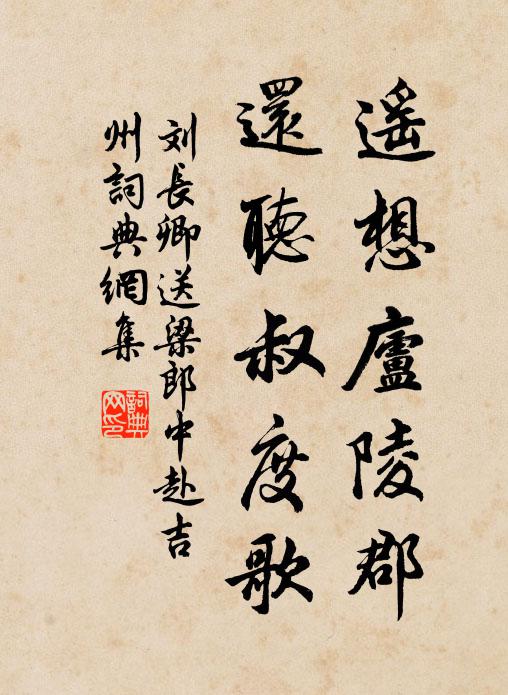 遥想廬陵郡
還聽叔度歌
刘長卿送梁郎中赴吉
州詞典網集
詞典
网印